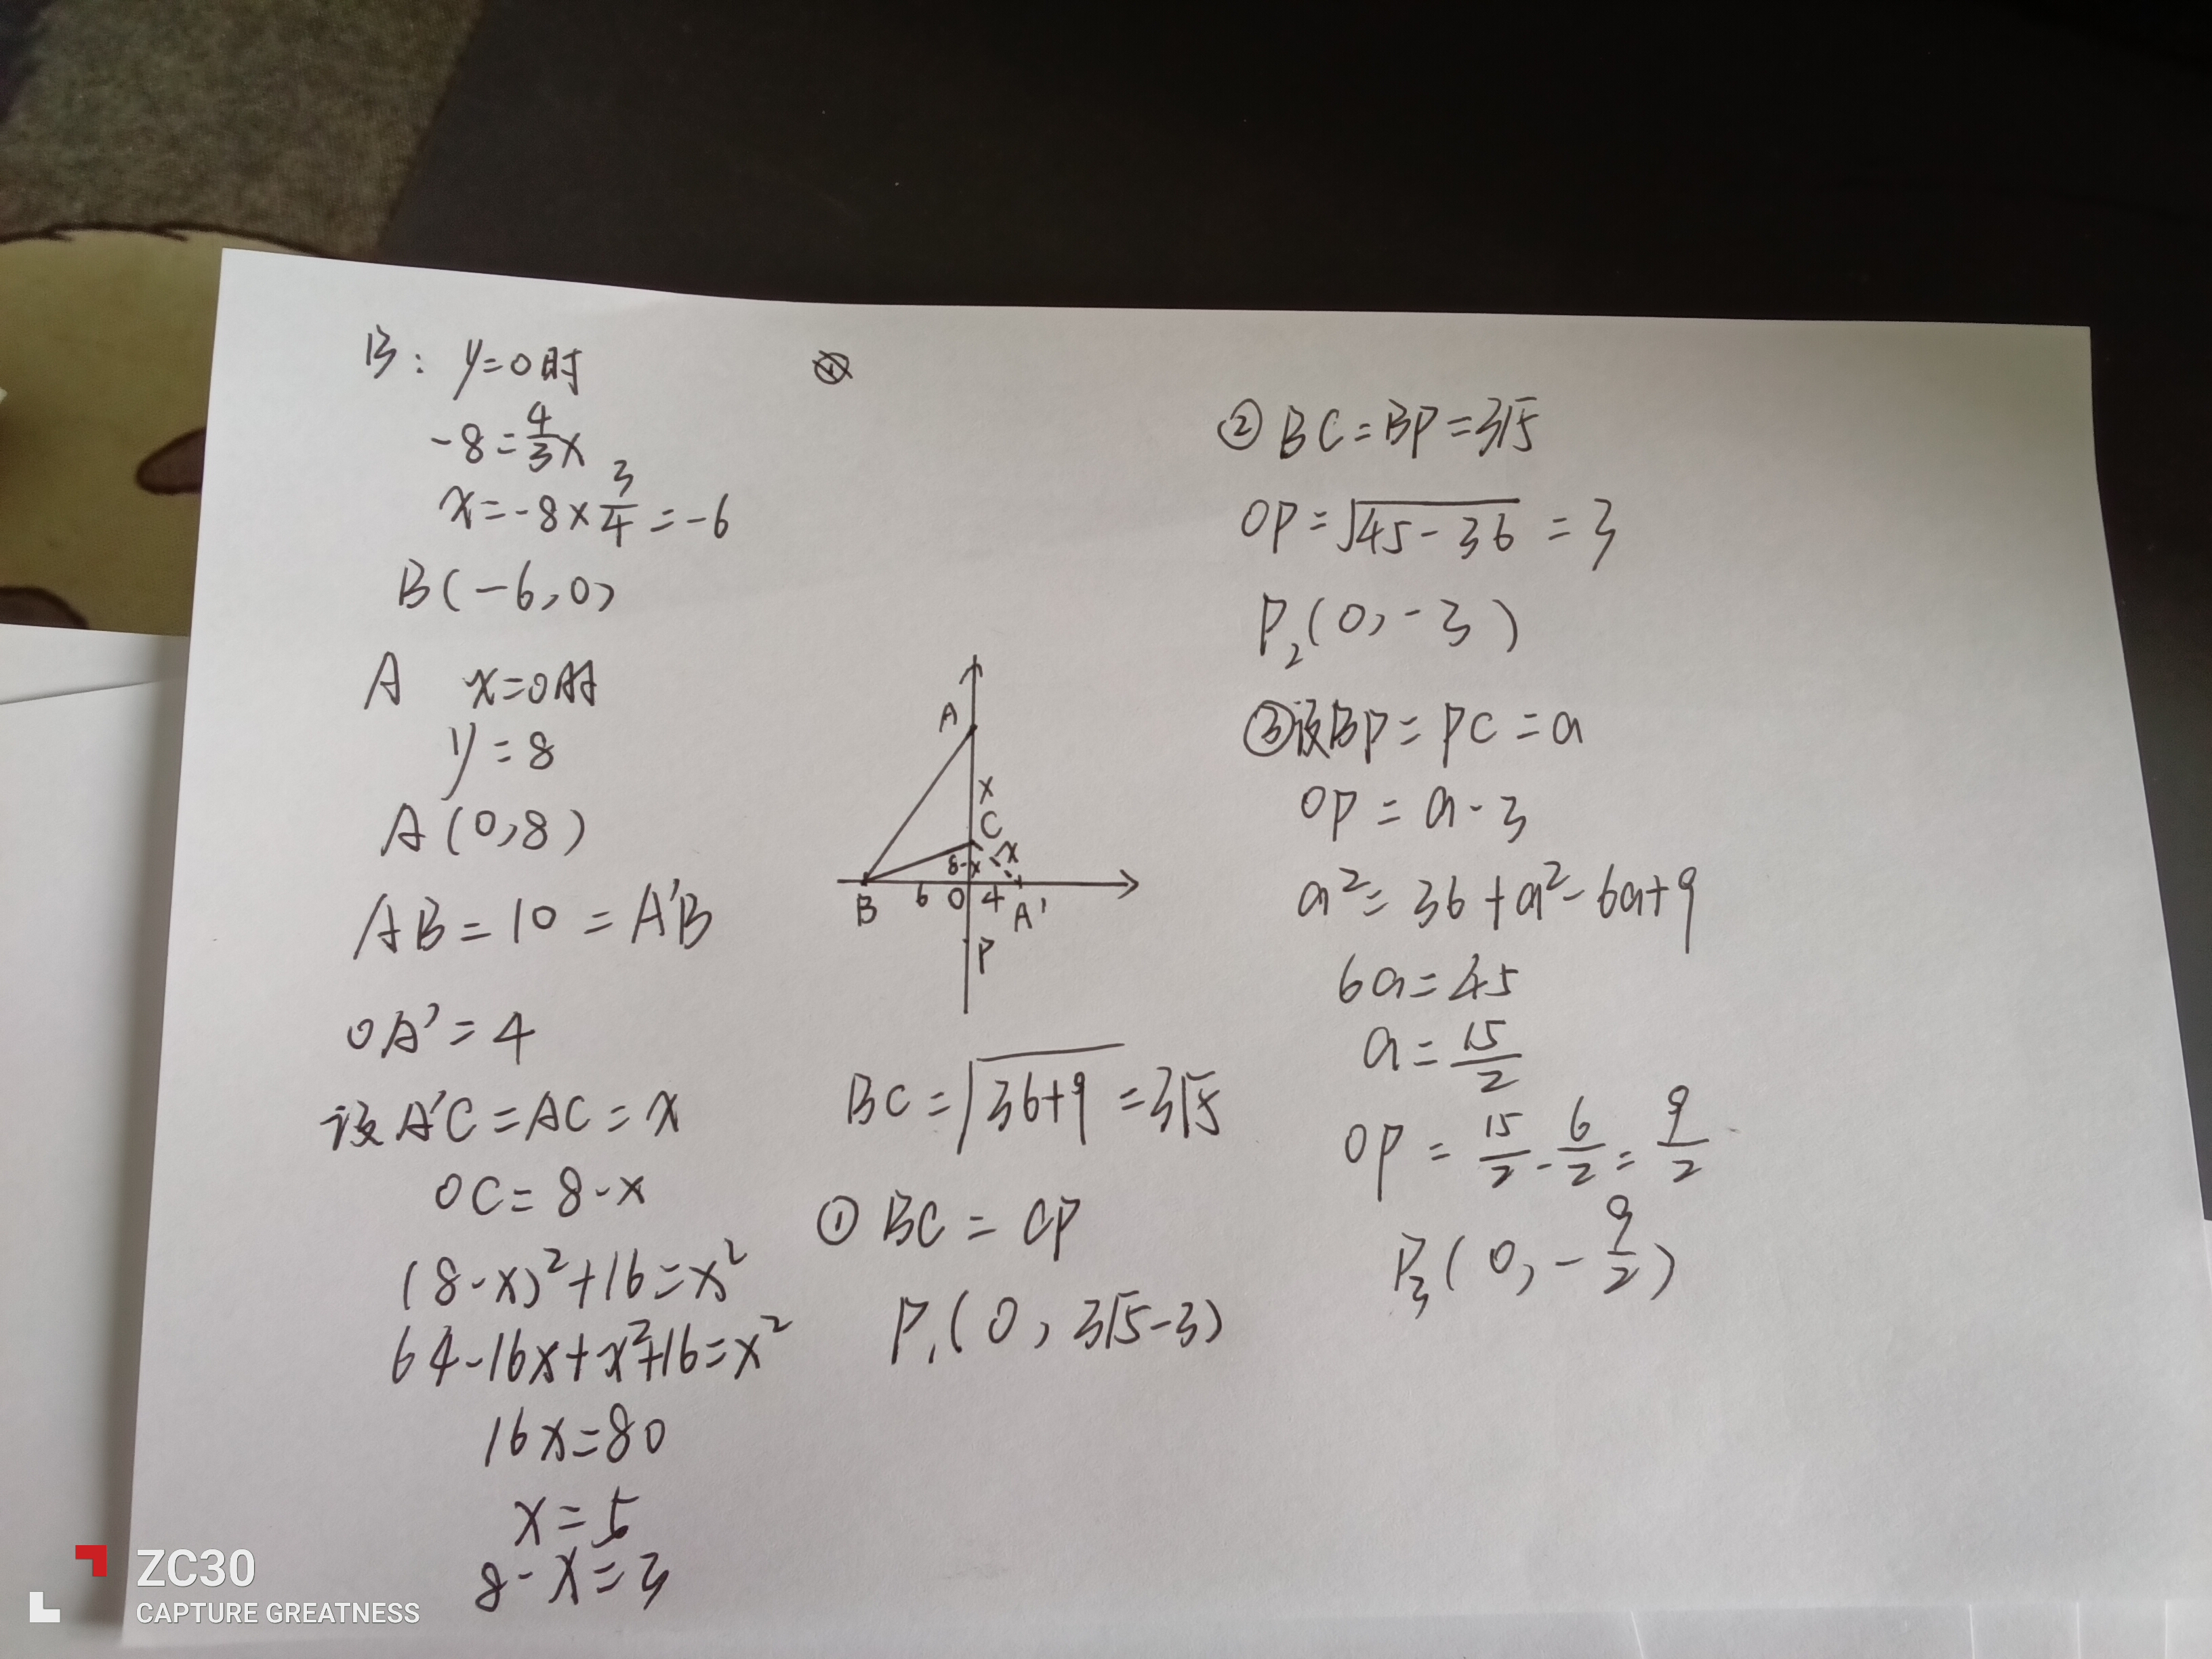 B: y=0时
-8=4/3x
x=-8×3/4=-6
B(-6,0)
A x=0时
y=8
A(0,8)
AB=10=A'B
OA'=4
设A'C=AC=x
OC=8-x
(8-x)²+16=x²
64-16x+x²+16=x²
16x=80
x=5
8-x=3
A
x
C
8-x
x
B
6
O
4
A'
P
BC=√(36+9)=3√5
① BC=CP
P₁(0,3√5-3)
② BC=BP=3√5
OP=√(45-36)=3
P₂(0,-3)
③设BP=PC=a
OP=a-3
a²=36+a²-6a+9
6a=45
a=15/2
OP=15/2-6/2=9/2
P₃(0,-9/2)
ZC30
CAPTURE GREATNESS